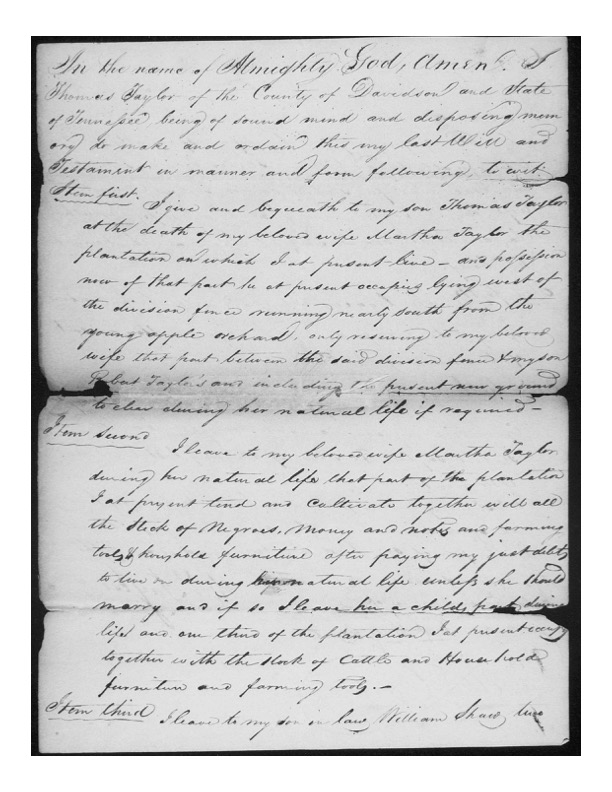 In the name of Almighty God, Amen. I
Thomas Taylor of the County of Davidson and State
of Tennessee being of sound mind and disposing mem
ory do make and ordain this my last Will and
Testament in manner and form following, to wit
Item first. I give and bequeath to my son Thomas Taylor
at the death of my beloved wife Martha Taylor the
plantation on which I at present live – and possession
now of that part he at present occupies lying west of
the division fence running nearly south from the
young apple orchard, only reserving to my beloved
wife that part between the said division fence & my son
Robert Taylor's and including the present new ground
to clear during her natural life if required –
Item second I leave to my beloved wife Martha Taylor
during her natural life that part of the plantation
I at present tend and cultivate together with all
the Stock of Negroes, Money and notes and farming
tools & houshold furniture after paying my just debts
to live on during her natural life unless she should
marry and if so I leave her a childs part during
life and one third of the plantation I at present occupy
together with the stock of Cattle and Household
furniture and farming tools. –
Item third I leave to my son in law William Shaw two